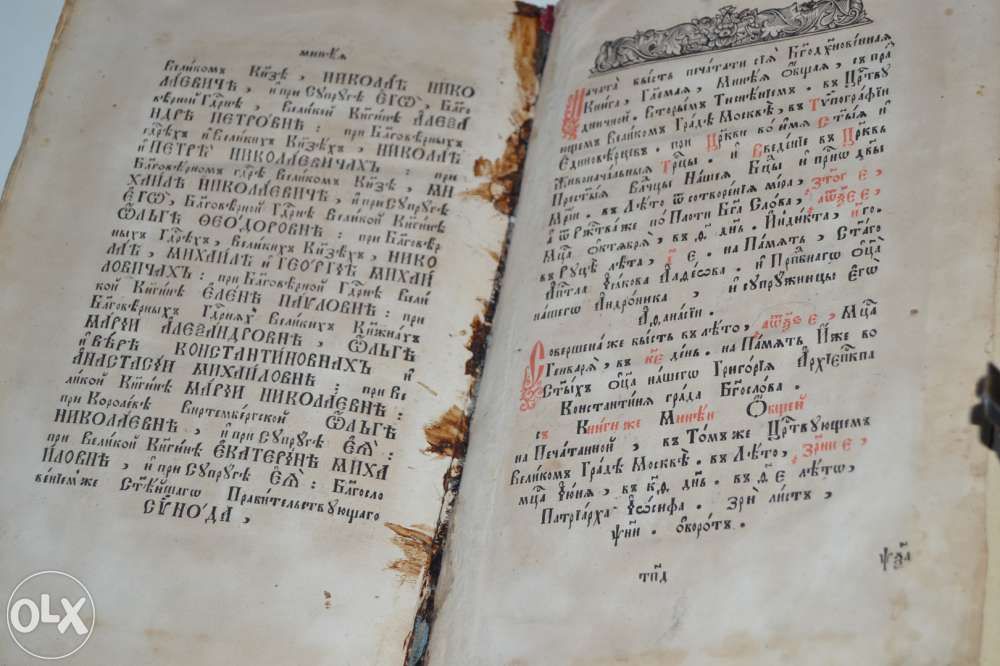 минеѧ
Великомъ Кн҃зѣ, НИКОЛАѢ НИКО
ЛАЕВИЧѢ, и҆ при Сꙋпрꙋгѣ ЕГѠ, Бл҃го
вѣрной Гдⷭ҇рнѣ, Великой Кн҃гинѣ АЛЕѮА
НДРѢ ПЕТРОВНѢ: при Бл҃говѣрныхъ
гдⷭ҇рѣхъ и҆ Великихъ Кн҃зѣхъ, НИКОЛАѢ
и҆ ПЕТРѢ НИКОЛАЕВИЧАХЪ: при
Бл҃говѣрномъ гдⷭ҇рѣ Великомъ Кн҃зѣ, МИ
ХАИЛѢ НИКОЛАЕВИЧѢ, и҆ при Сꙋпрꙋгѣ
ЕГѠ, Бл҃говѣрной Гдⷭ҇рнѣ Великой Кн҃гинѣ
ѠЛЬГѢ ѲЕОДОРОВНѢ: при Бл҃говѣр
ныхъ Гдⷭ҇рѣхъ, Великихъ Кн҃зѣхъ, НИКО
ЛАѢ, МИХАИЛѢ и҆ ГЕОРГІѢ МИХАИ
ЛОВИЧАХЪ: при Бл҃говѣрной Гдⷭ҇рнѣ Вели
кой Кн҃гинѣ ЕЛЕНѢ ПАѴЛОВНѢ: при
Бл҃говѣрныхъ Гдⷭ҇рняхъ Великихъ Кн҃жнахъ
МАРІИ АЛЕѮАНДРОВНѢ, ѠЛЬГѢ
и҆ ВѢРѢ КОНСТАНТИНОВНАХЪ и҆
АНАСТАСІИ МИХАИЛОВНѢ: при Ве
ликой Кн҃гинѣ МАРІИ НИКОЛАЕВНѢ:
при Королевѣ Виртембергской ѠЛЬГѢ
НИКОЛАЕВНѢ, и҆ при Сꙋпрꙋгѣ ЕѦ:
при Великой Кн҃гинѣ ЕКАТЕРИНѢ МИХА
ИЛОВНѢ, и҆ при Сꙋпрꙋгѣ ЕѦ: Бл҃госло
венїемже Ст҃ѣйшагѡ Правительствꙋющагѡ
СѴНОДА,
Начата̀ бысть печатати сїѧ̀ Бг҃одꙋхновеннаѧ
Книга, Гл҃емаѧ, Минеѧ Ѻ҆бщаѧ, съ пра
здничной. Вторымъ Тисненїемъ. въ Црⷭ҇твꙋ
ющемъ Великомъ Градѣ Москвѣ, въ Тѵпографїи
Единовѣрцевъ. при Цр҃кви во и҆мѧ Ст҃ыѧ и҆
Живоначальныѧ Трⷪ҇цы. и҆ Введенїе въ Цр҃ковь
Прест҃ыѧ Влⷣчцы Нашеѧ Бц҃ы и҆ приснѡ дв҃ы
Мр҃їи. въ Лѣто ѿ сотворенїѧ мїра,
а҆ ѿ Ржⷭ҇тва же по Плоти Бг҃а Слова,
Мцⷭ҇а Октѧбрѧ, въ д҃ днь. Индикта, го.
въ Рꙋцѣ лѣта, Е. на Память, Ст҃агѡ
А҆пⷭ҇тла Іѡкова Алфеова. и҆ Прпⷣбнагѡ Оц҃а
нашегѡ Андроника, и҆ сꙋпрꙋжницы Егѡ
Аѳанасїи.
Совершена же бысть въ лѣто, Мцⷭ҇а
Генварѧ, въ к҃е день. на Память Иже во
Ст҃ыхъ Оц҃а нашегѡ Григорїѧ Архїепⷭ҇кпа
Константинѧ града Бг҃ослова.
съ Книги же Минеи Ѻ҆бщей
на Печѧтанной, въ Томъ же Црⷭ҇твꙋющемъ
Великомъ Градѣ Москвѣ. въ Лѣто,
мцⷭ҇а Іюнѧ, въ к҃д днь. въ Лѣто,
Патрїарха Іѡсифа. Зри листъ,
оборотъ.
тп҃д
OLX